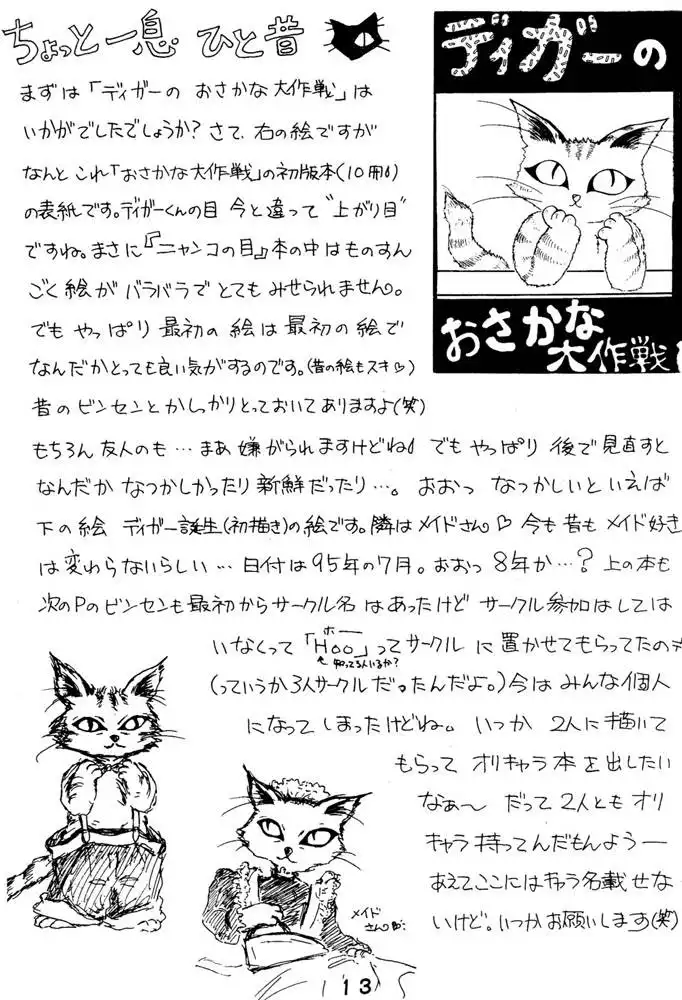 ちょっと一息 ひと昔
ディガーの
おさかな
大作戦
まずは「ディガーの おさかな大作戦」は
いかがでしたでしょうか? さて、右の絵ですが
なんと これ「おさかな大作戦」の初版本(10冊)
の表紙です。ディガーくんの目 今と違って“上がり目”
ですね。まさに『ニャンコの目』本の中はものすん
ごく絵が バラバラで とても みせられません。
でも やっぱり 最初の 絵は 最初の 絵で
なんだかとっても良い気がするのです。(昔の絵もスキ♡)
昔のビンセンとかしっかりとっておいてありますよ(笑)
もちろん 友人のも…まあ 嫌がられますけどね でも やっぱり 後で見直すと
なんだか なつかしかったり 新鮮だったり…。 おおっ なつかしいといえば
下の絵 ディガー誕生(初描き)の絵です。隣はメイドさん♡ 今も昔もメイド好き
は変わらないらしい… 日付は95年の7月。おおっ 8年か…? 上の本も
次のPのビンセンも最初からサークル名はあったけど サークル参加はしては
いなくって「Hoo」ってサークルに置かせてもらってたの
ホー
↑知ってる人いるか?
(っていうか3人サークルだったんだよ。)今は みんな個人
になって しまったけどね。 いつか 2人に描いて
もらって オリキャラ本を出したい
なぁ〜 だって 2人とも オリ
キャラ 持ってんだもんよう―
あえて ここには キャラ名載せな
いけど。いつかお願いします(笑)
メイド
さん
13